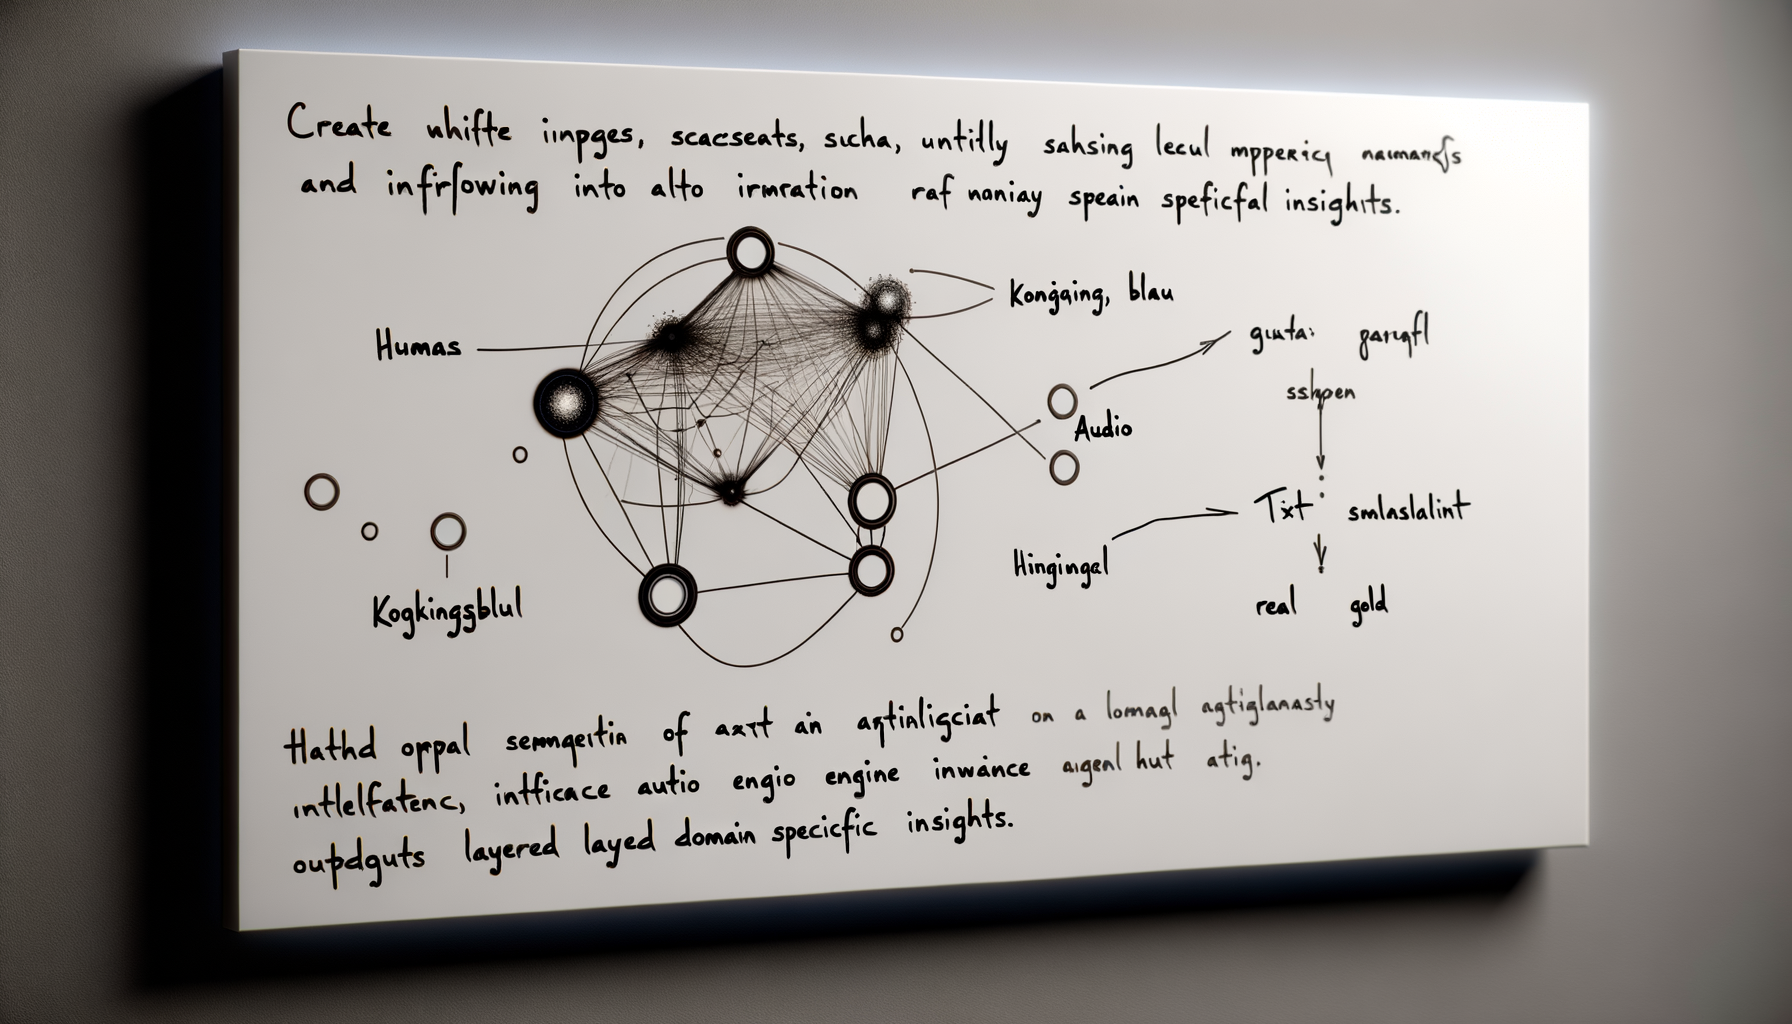 Create whifte iinpges, scacseats, sucha, untitly sahsing lecul mppericy
and infrfowing into alto irmration raf noniay speain speficfal insights.
Humas
Kongaing, blau
guta: garqfl
sshpen
Audio
Txt smlaslalint
Hingingal
real gold
Kogkingsblul
Hathd oppal semmqeitin of axtt an aqtinligciat on a lomagl agtiglanasty
intlelfatenc, intficace autio engio engine inwance aigenl hut atig.
outpdguts layered layed domain specicfic insights.